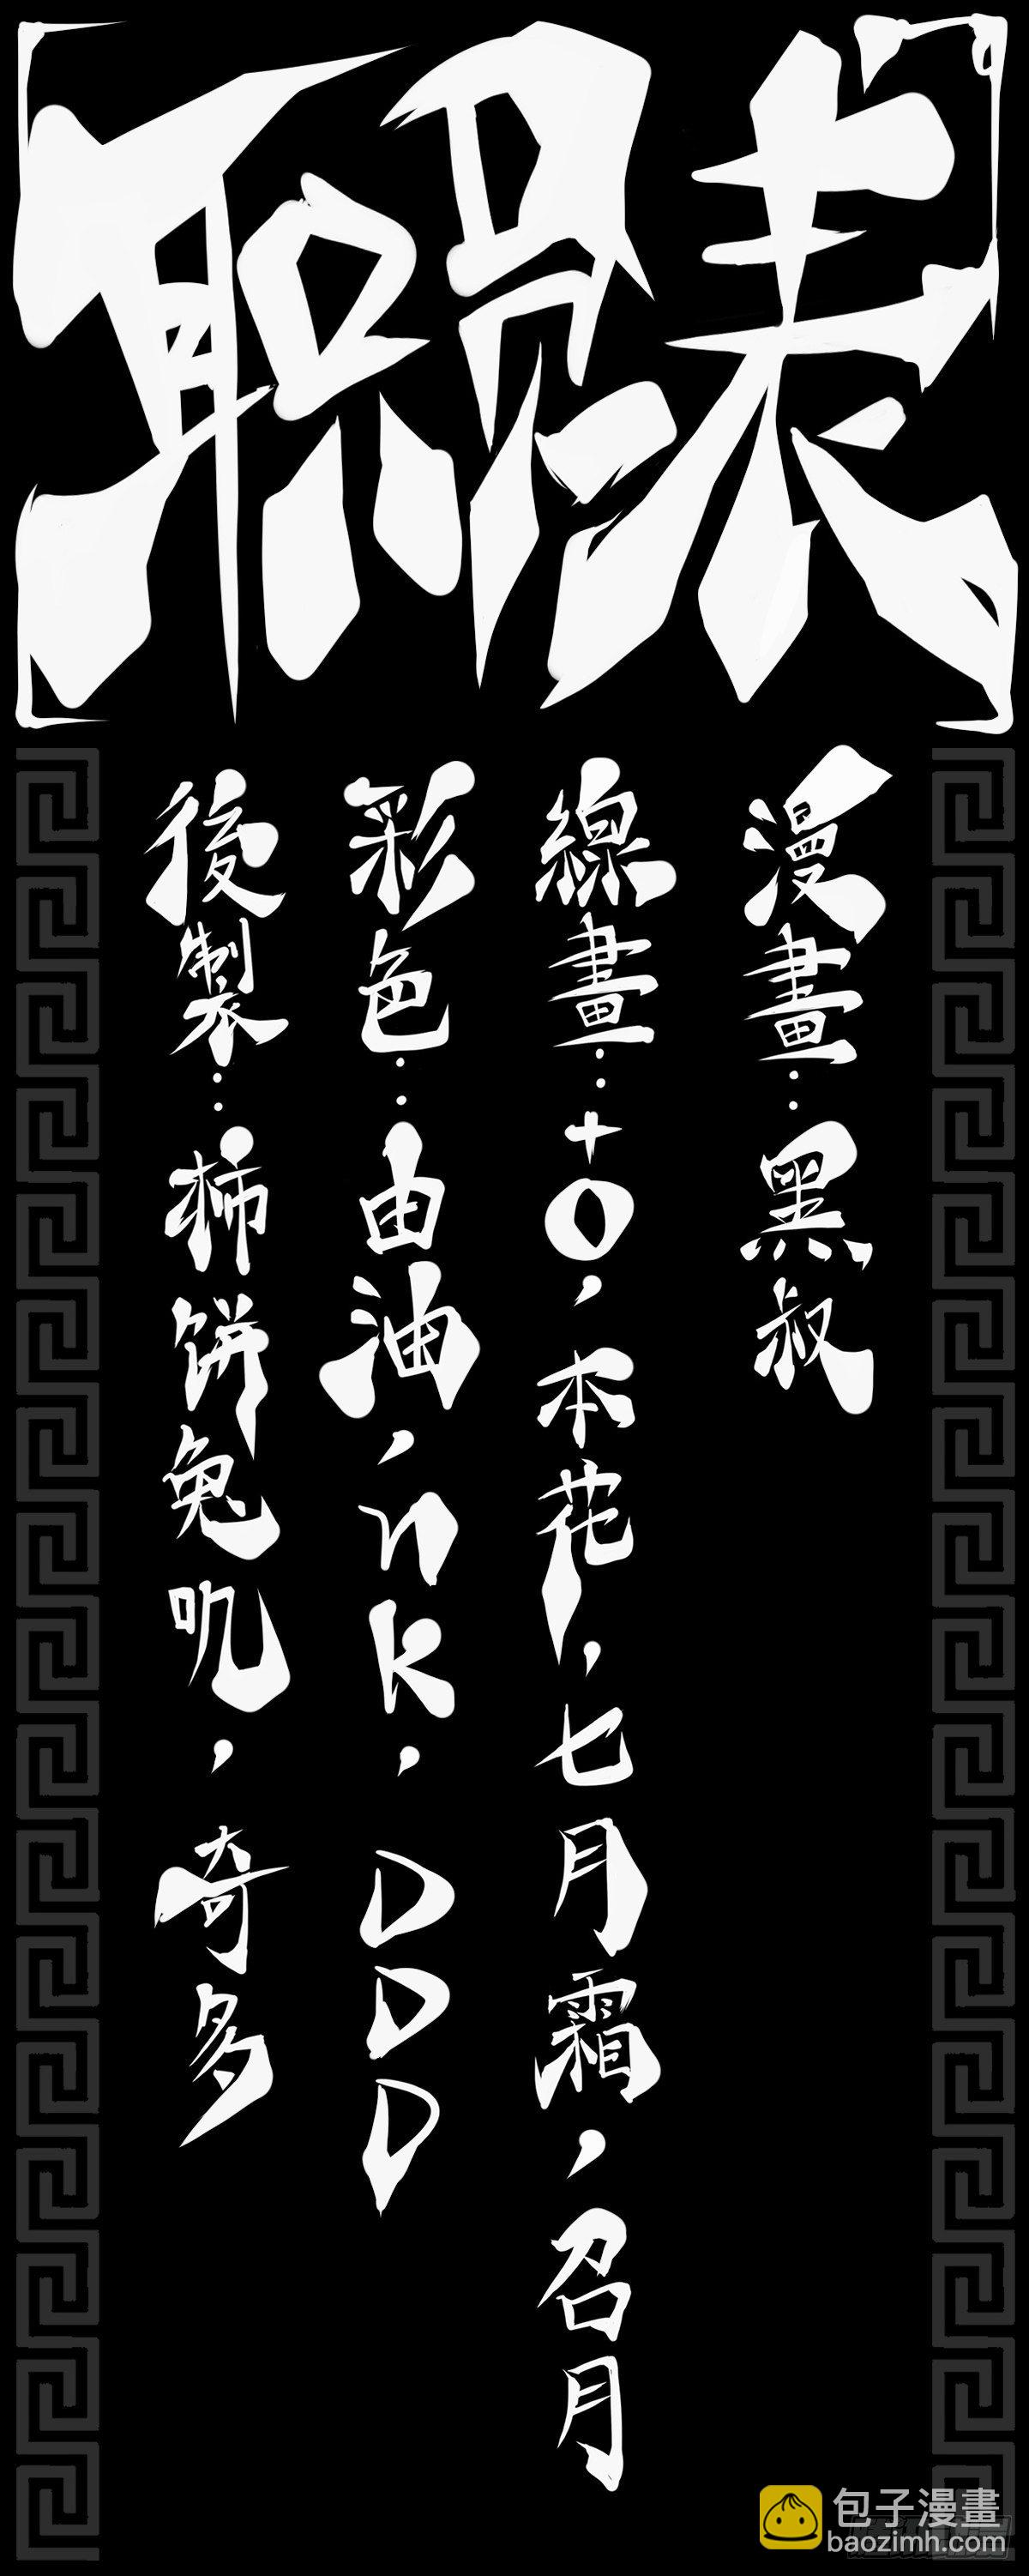 职员表
漫畫：黑叔
線畫：+O，本花，七月霜，召月
彩色：由油，nk，DDD
後製：柿饼兔叽，奇多
包子漫畫
baozimh.com